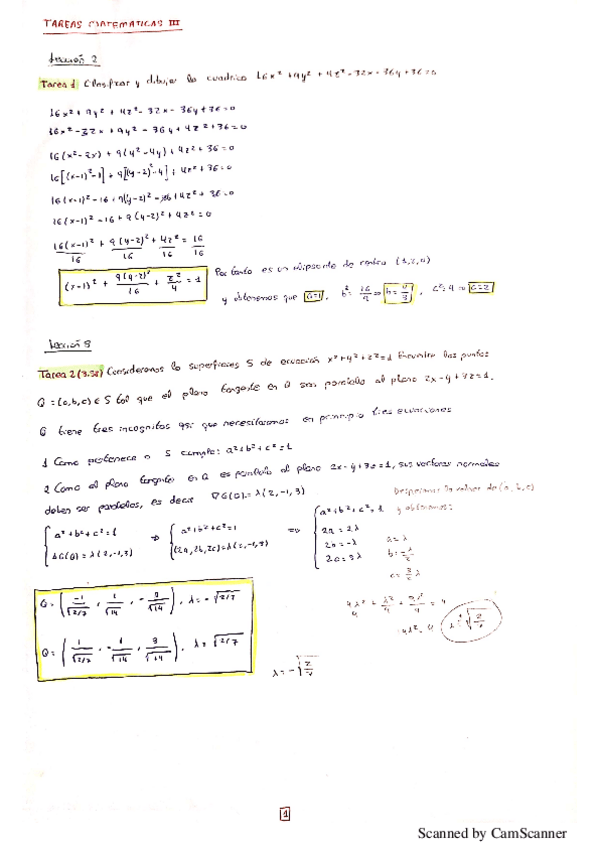 TAREAS MATEMATICAS III
Lección 2
Tarea 1 Clasificar y dibujar la cuadrica 16x² + 9y² + 4z² - 32x - 36y + 36 = 0
16x² + 9y² + 4z² - 32x - 36y + 36 = 0
16x² - 32x + 9y² - 36y + 4z² + 36 = 0
16(x² - 2x) + 9(y² - 4y) + 4z² + 36 = 0
16[(x-1)² - 1] + 9[(y-2)² - 4] + 4z² + 36 = 0
16(x-1)² - 16 + 9(y-2)² - 36 + 4z² + 36 = 0
16(x-1)² - 16 + 9(y-2)² + 4z² = 0
16(x-1)²/16 + 9(y-2)²/16 + 4z²/16 = 16/16
(x-1)² + 9(y-2)²/16 + z²/4 = 1
Por tanto es un elipsoide de centro (1,2,0)
y obtenemos que a=1, b² = 16/9 ⇒ b = 4/3, c² = 4 ⇒ c = 2
Lección 3
Consideramos la superficie S de ecuación x² + y² + z² = 1 Encuentre los puntos
Q = (a,b,c) ∈ S tal que el plano tangente en Q sea paralelo al plano 2x - y + 3z = 1.
Q tiene tres incognitas asi que necesitaremos en principio tres ecuaciones
1 Como pertenece a S cumple: a² + b² + c² = 1
2 Como el plano tangente en Q es paralelo al plano 2x - y + 3z = 1, sus vectores normales
deben ser paralelos, es decir ∇G(Q) = λ(2,-1,3)
Despejamos los valores de (a, b, c)
y obtenemos:
{ a² + b² + c² = 1 ⇒ { a² + b² + c² = 1 ⇒ { a² + b² + c² = 1
ΔG(Q) = λ(2,-1,3) (2a, 2b, 2c) = λ(2,-1,3) 2a = 2λ a = λ
2b = -λ b = -λ/2
2c = 3λ c = 3/2 λ
Q = ( -1/√2/7 , 1/√14 , -3/√14 ), λ = -√2/7
Q = ( 1/√2/7 , -1/√14 , 3/√14 ), λ = √2/7
4λ²/4 + λ²/4 + 9λ²/4 = 4
λ = √2/7
λ = -√2/7
1
Scanned by CamScanner